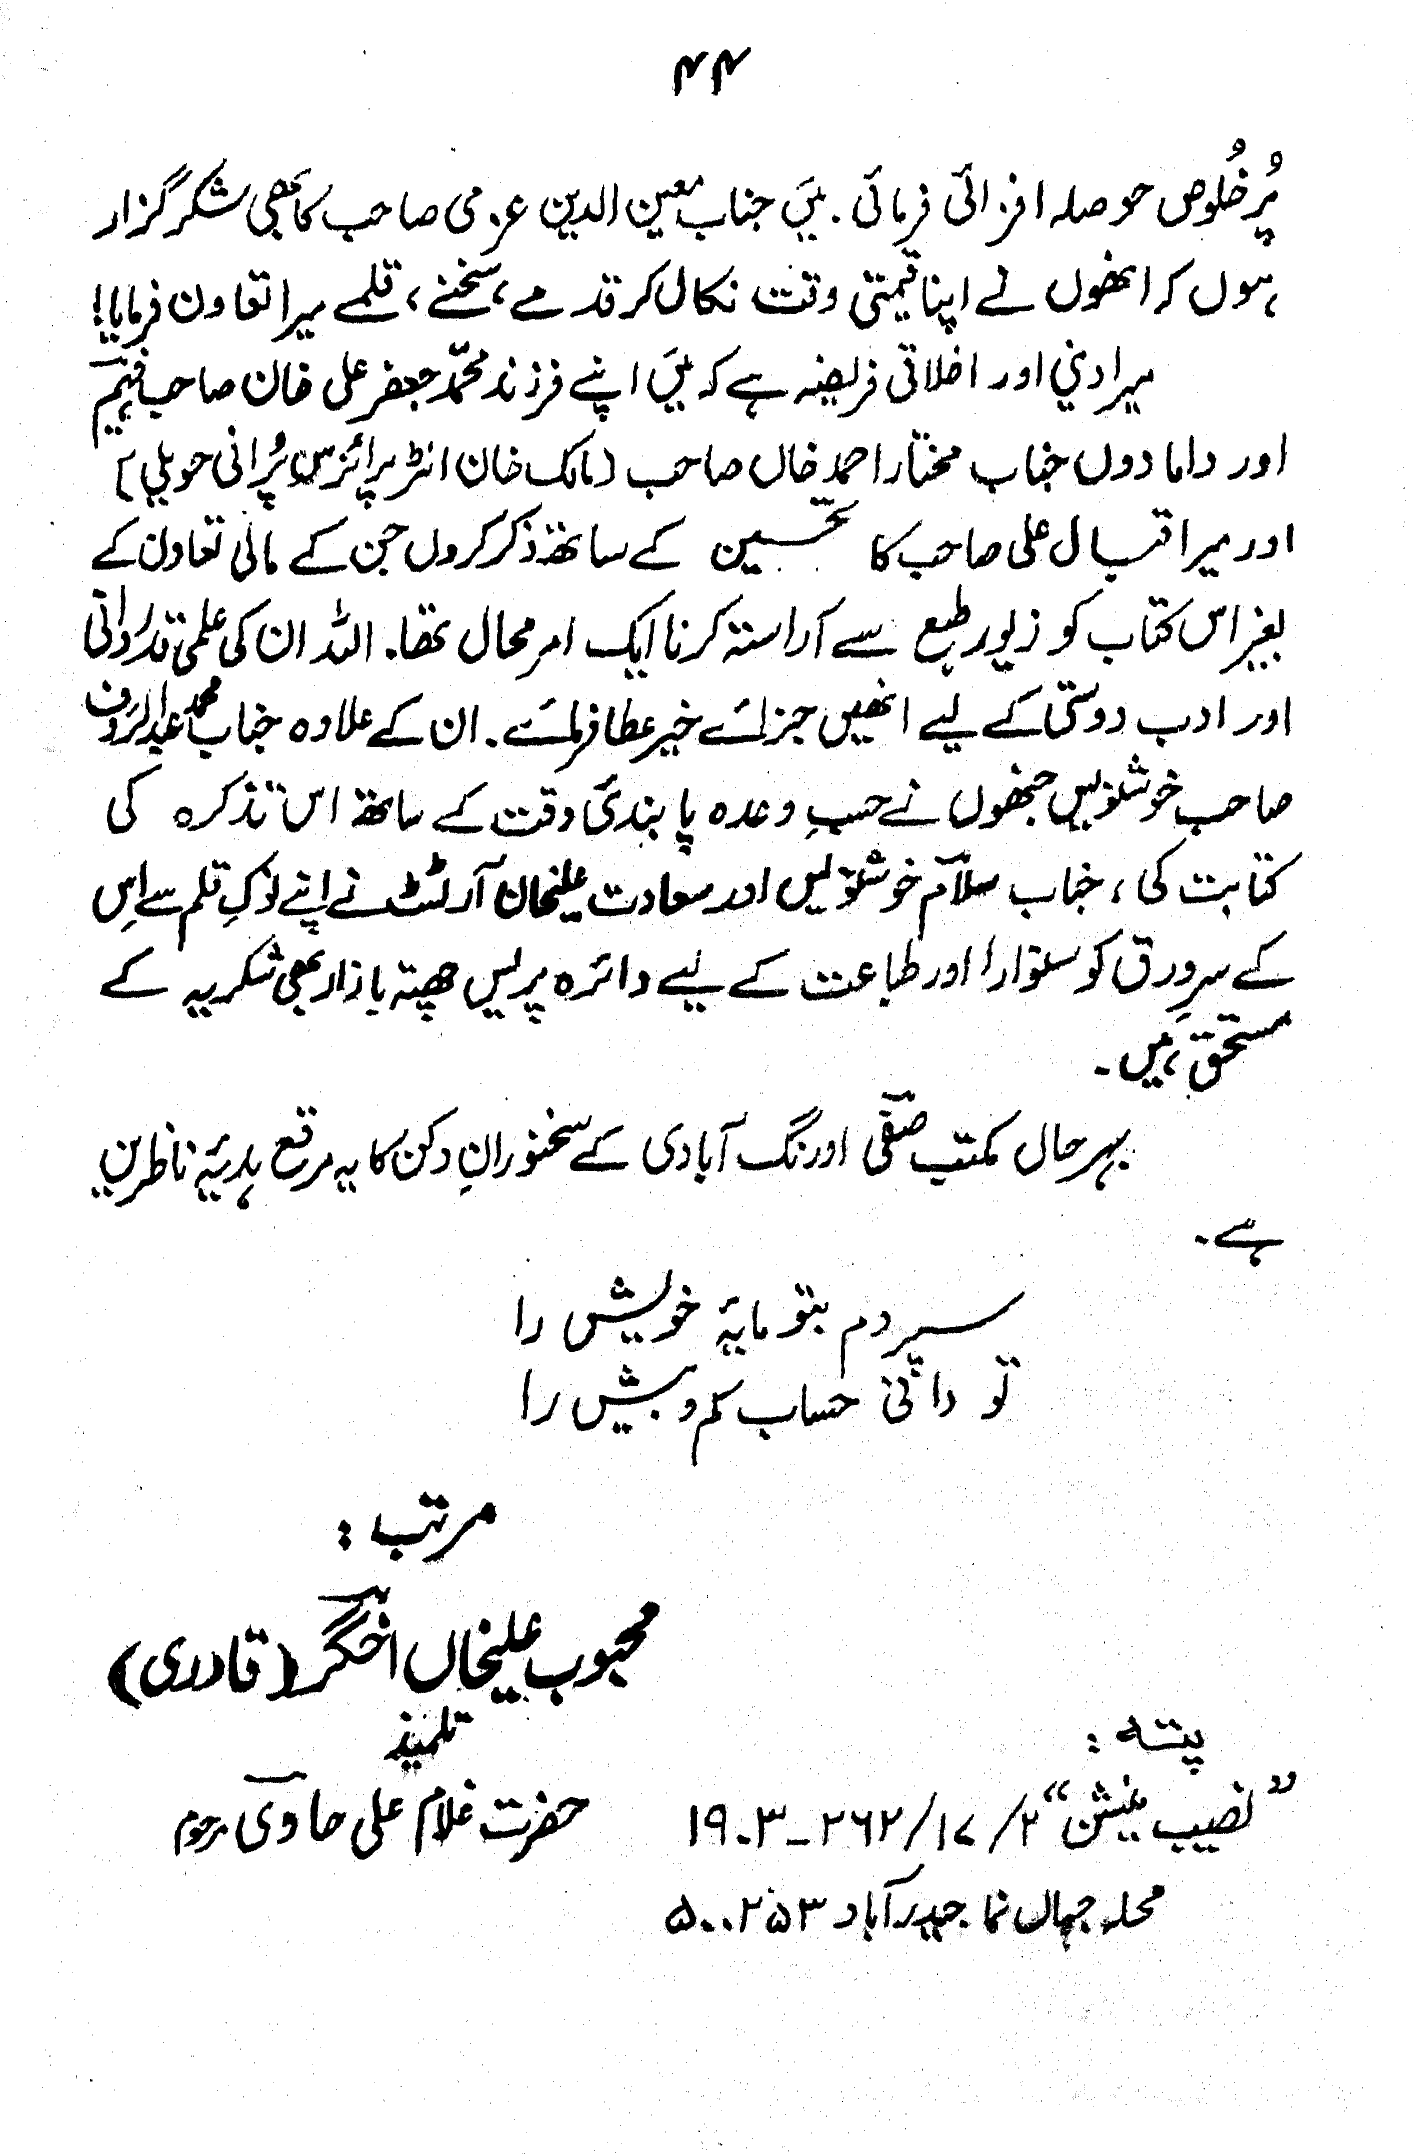 ۴۴
پُر خُلوص حوصلہ افزائی فرمائی۔ میں جناب معین الدین عزمی صاحب کا بھی شکر گزار
ہوں کہ انھوں نے اپنا قیمتی وقت نکال کر قدمے، سخنے، قلمے میرا تعاون فرمایا!
میرا دینی اور اخلاقی فریضہ ہے کہ میں اپنے فرزند محمّد جعفر علی خان صاحب فہیم
اور دامادوں جناب مختار احمد خاں صاحب (مالک خان انٹرپرائزس پُرانی حویلی)
اور میر اقبال علی صاحب کا تحسین کے ساتھ ذکر کروں جن کے مالی تعاون کے
بغیر اس کتاب کو زیور طبع سے آراستہ کرنا ایک امر محال تھا۔ اللہ ان کی علمی قدردانی
اور ادب دوستی کے لیے انھیں جزائے خیر عطا فرمائے۔ ان کے علاوہ جناب محمد عبدالرؤف
صاحب خوشنویس جنھوں نے حسبِ وعدہ پابندئ وقت کے ساتھ اس تذکرہ کی
کتابت کی، جناب سلام خوشنویس اور سعادت علیخان آرٹسٹ نے اپنے نوکِ قلم سے اِس
کے سرِورق کو سنوارا اور طباعت کے لیے دائرہ پریس چھتہ بازار بھی شکریہ کے
مستحق ہیں۔
بہرحال مکتبِ صفی اورنگ آبادی کے سخنورانِ دکن کا یہ مرقع ہدیۂ ناظرین
ہے۔
سپردم بتو مایۂ خویش را
تو دانی حساب کم و بیش را
مرتب:
محبوب علیخاں اخگر (قادری)
تلمیذ
حضرت غلام علی حاوی مرحوم
پتہ:
”نصیب مینشن“ ۲/۱۷/۲۶۲-۳-۱۹
محلہ جہاں نما حیدرآباد ۵۰۰۲۵۳